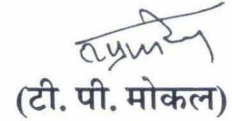 (टी. पी. मोकल)